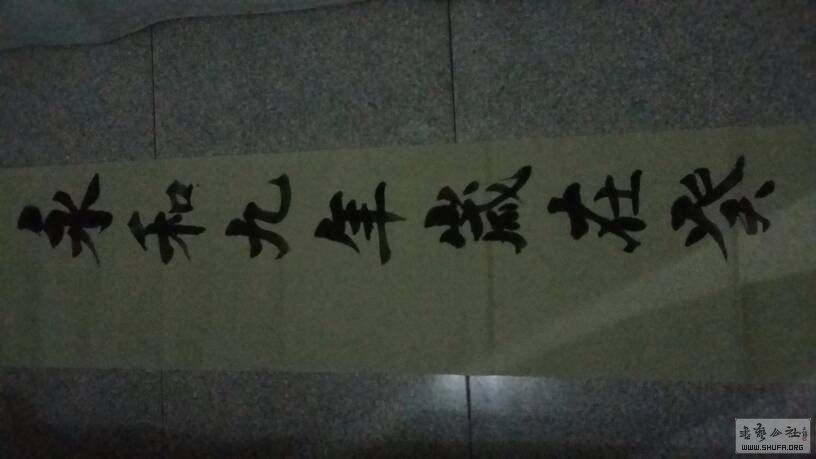 永和九年歲在癸
書藝公社
WWW.SHUFA.ORG